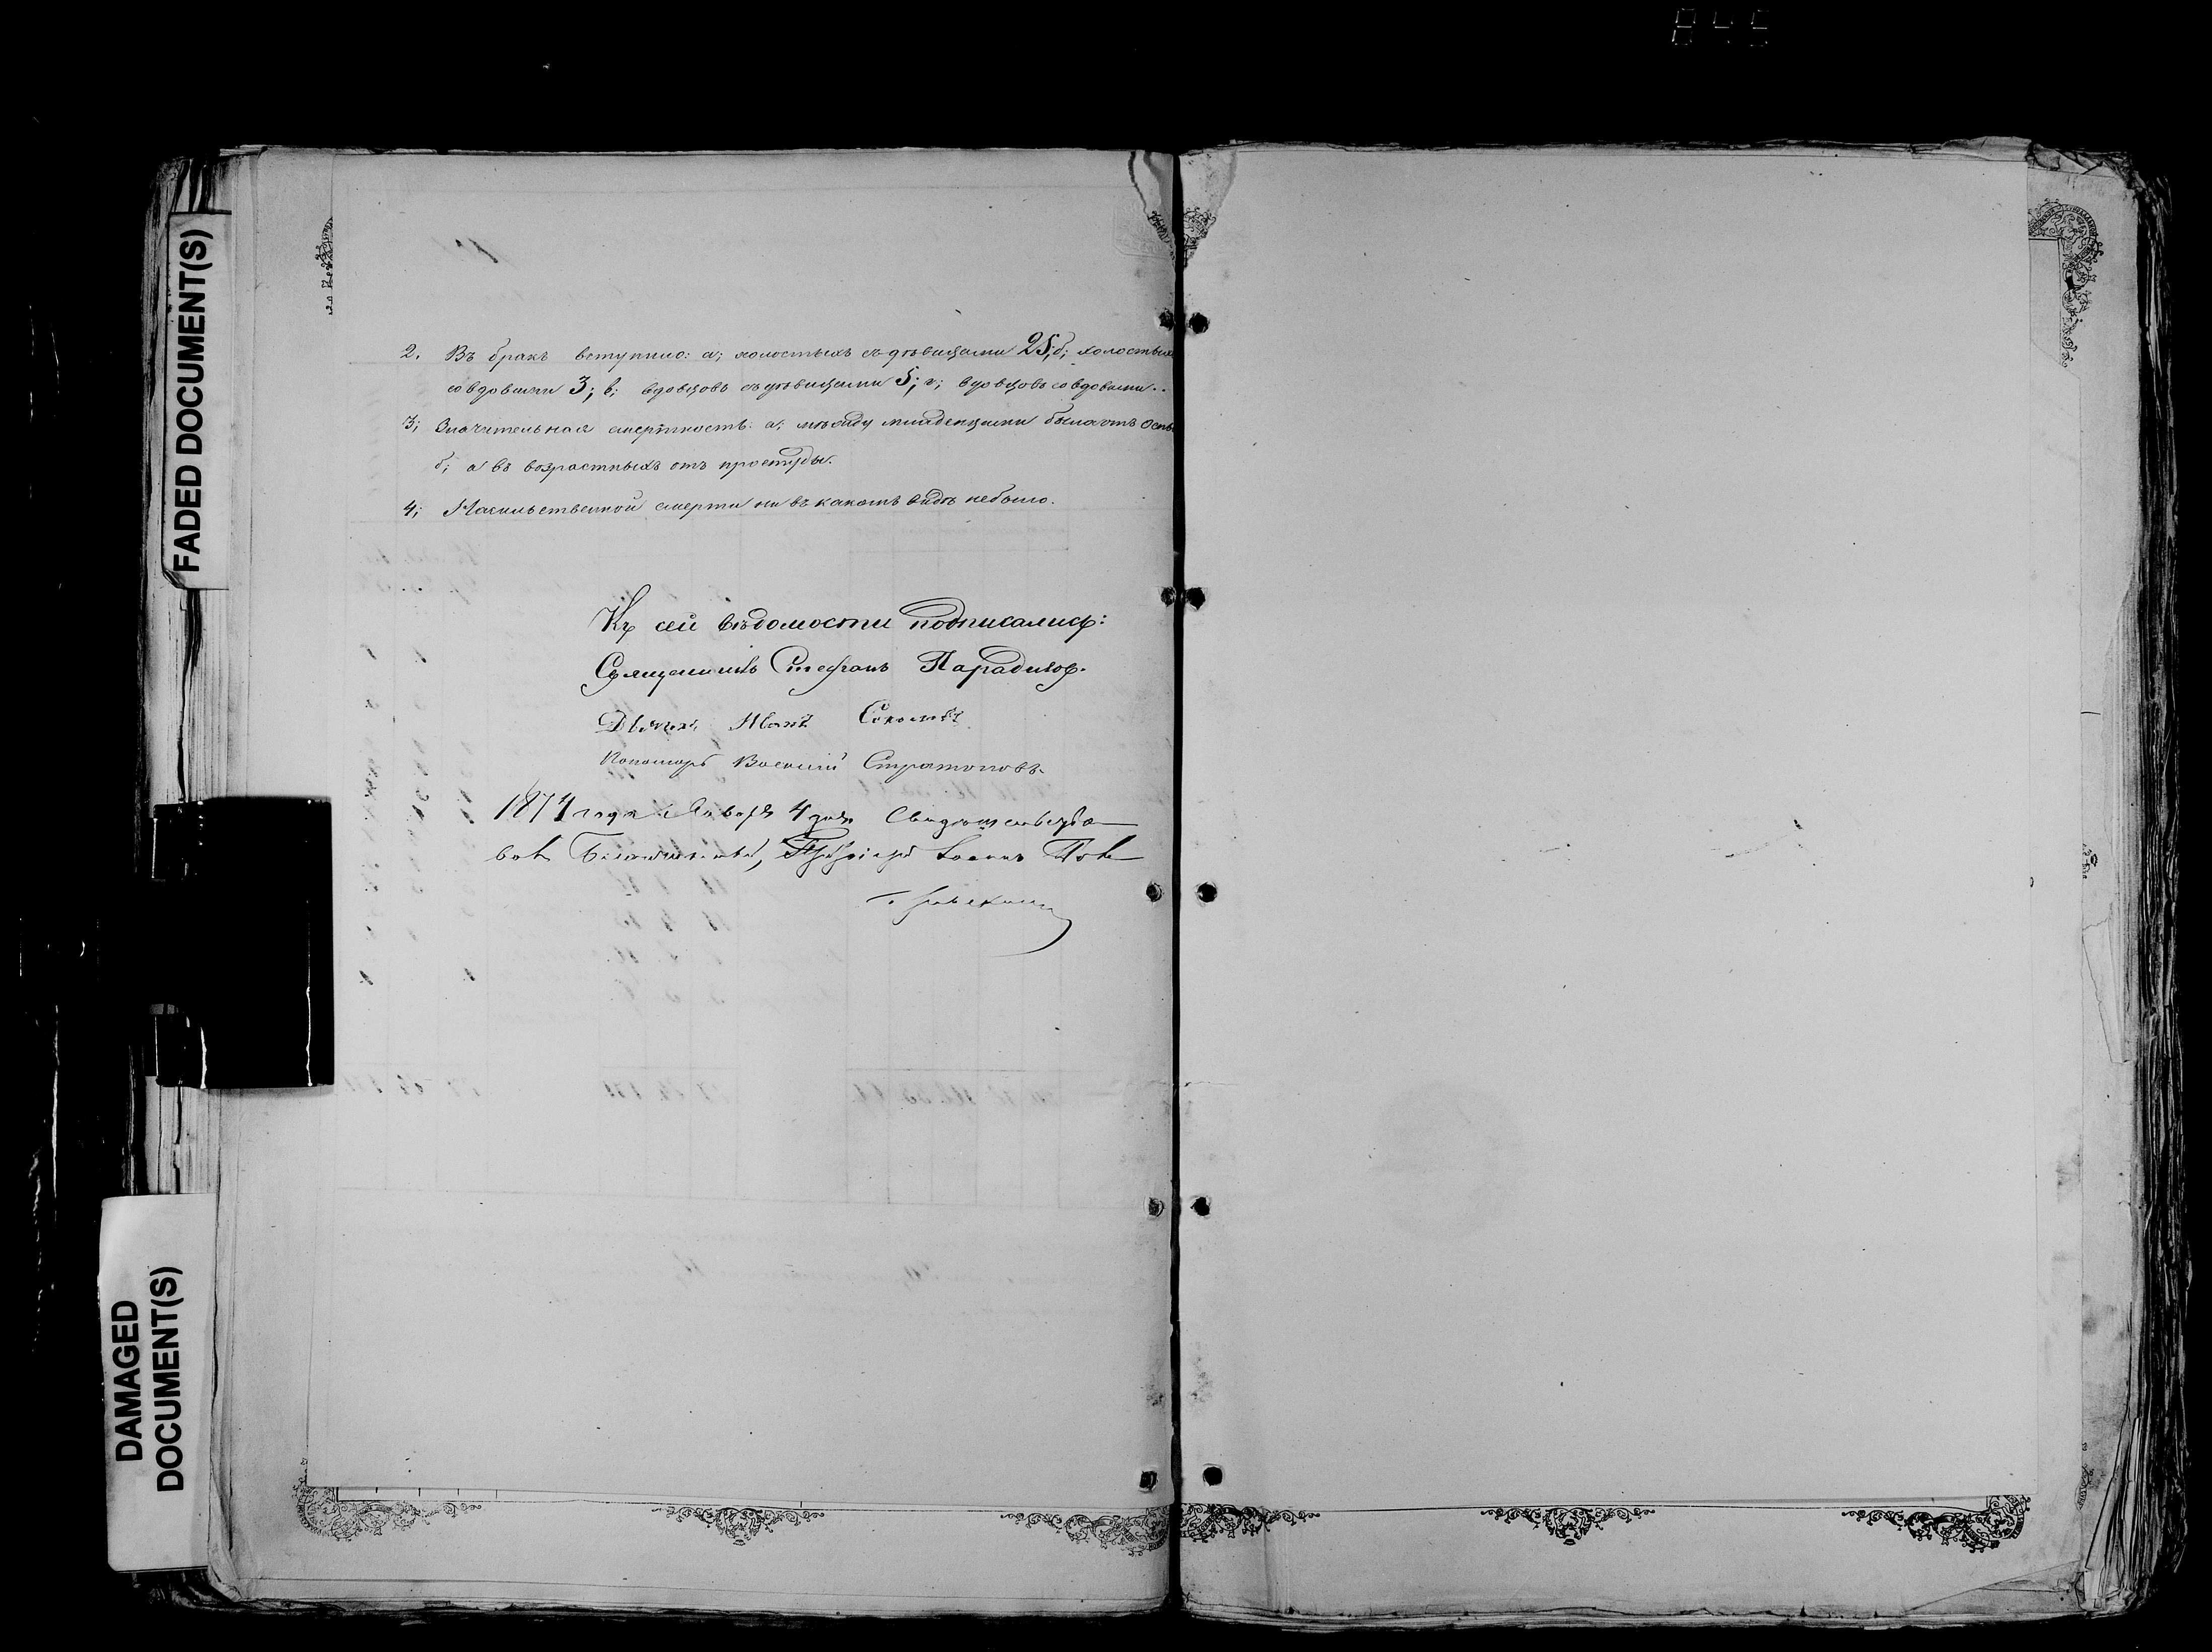 845
FADED DOCUMENT(S)
2. Въ бракъ вступило: а; холостыхъ съ дѣвицами 25; б; холостыхъ
со вдовами 3; в; вдовцовъ съ дѣвицами 5; г; вдовцовъ со вдовами..
3; Значительная смертность: а; между младенцами была отъ Оспы
б; а въ возрастныхъ отъ простуды.
4; Насильственной смерти ни въ какомъ видѣ небыло.
Къ сей вѣдомости подписались:
Священникъ Стефанъ Парадизовъ.
Дьячекъ Иванъ Соколовъ
Пономарь Василій Стратоновъ.
1874 года Января 4 дня Свидѣтельство
валъ Благочинный, Протоіерей Іоаннъ
DAMAGED
DOCUMENT(S)